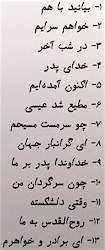 ۱- بیائید با هم
۲- خواهم سرایم
۳- در شب آخر
۴- خدای پدر
۵- اکنون آمده‌ایم
۶- مطیع شد عیسی
۷- چو سرمست مسیحم
۸- ای گرانبار جهان
۹- خداوندا پدر بر ما
۱۰- چون سرگردان من
۱۱- وقتی دلشکسته
۱۲- روح‌القدس به ما
۱۳- ای برادر و خواهرم